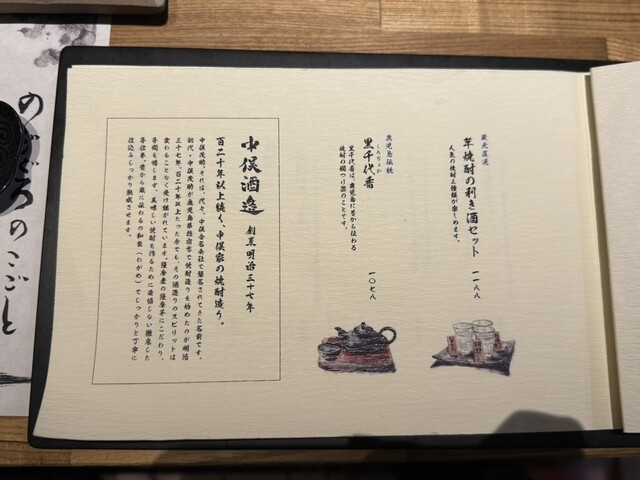 蔵元直送
芋焼酎の利き酒セット 一一八八
人気の焼酎三種類が楽しめます。
鹿児島伝統
くろぢょか
黒千代香 一〇七八
黒千代香は、鹿児島に昔から伝わる
焼酎の燗つけ器のことです。
中俣酒造 創業明治三十七年
百二十年以上続く、中俣家の焼酎造り。
中俣茂助、それは、代々、中俣合名会社で襲名されてきた名前です。
初代・中俣茂助が鹿児島県指宿市で焼酎造りを始めたのが明治
三十七年。百二十年以上たった今でも、その酒造りのスピリットは
変わることなく受け継がれています。薩摩産の薩摩芋にこだわり、
手間を惜しまず、美味しい焼酎を作るために妥協しない徹底した
手仕事。昔から蔵に伝わる和甕（わがめ）でしっかりと丁寧に
仕込みじっかり熟成させます。
めごころのこごと